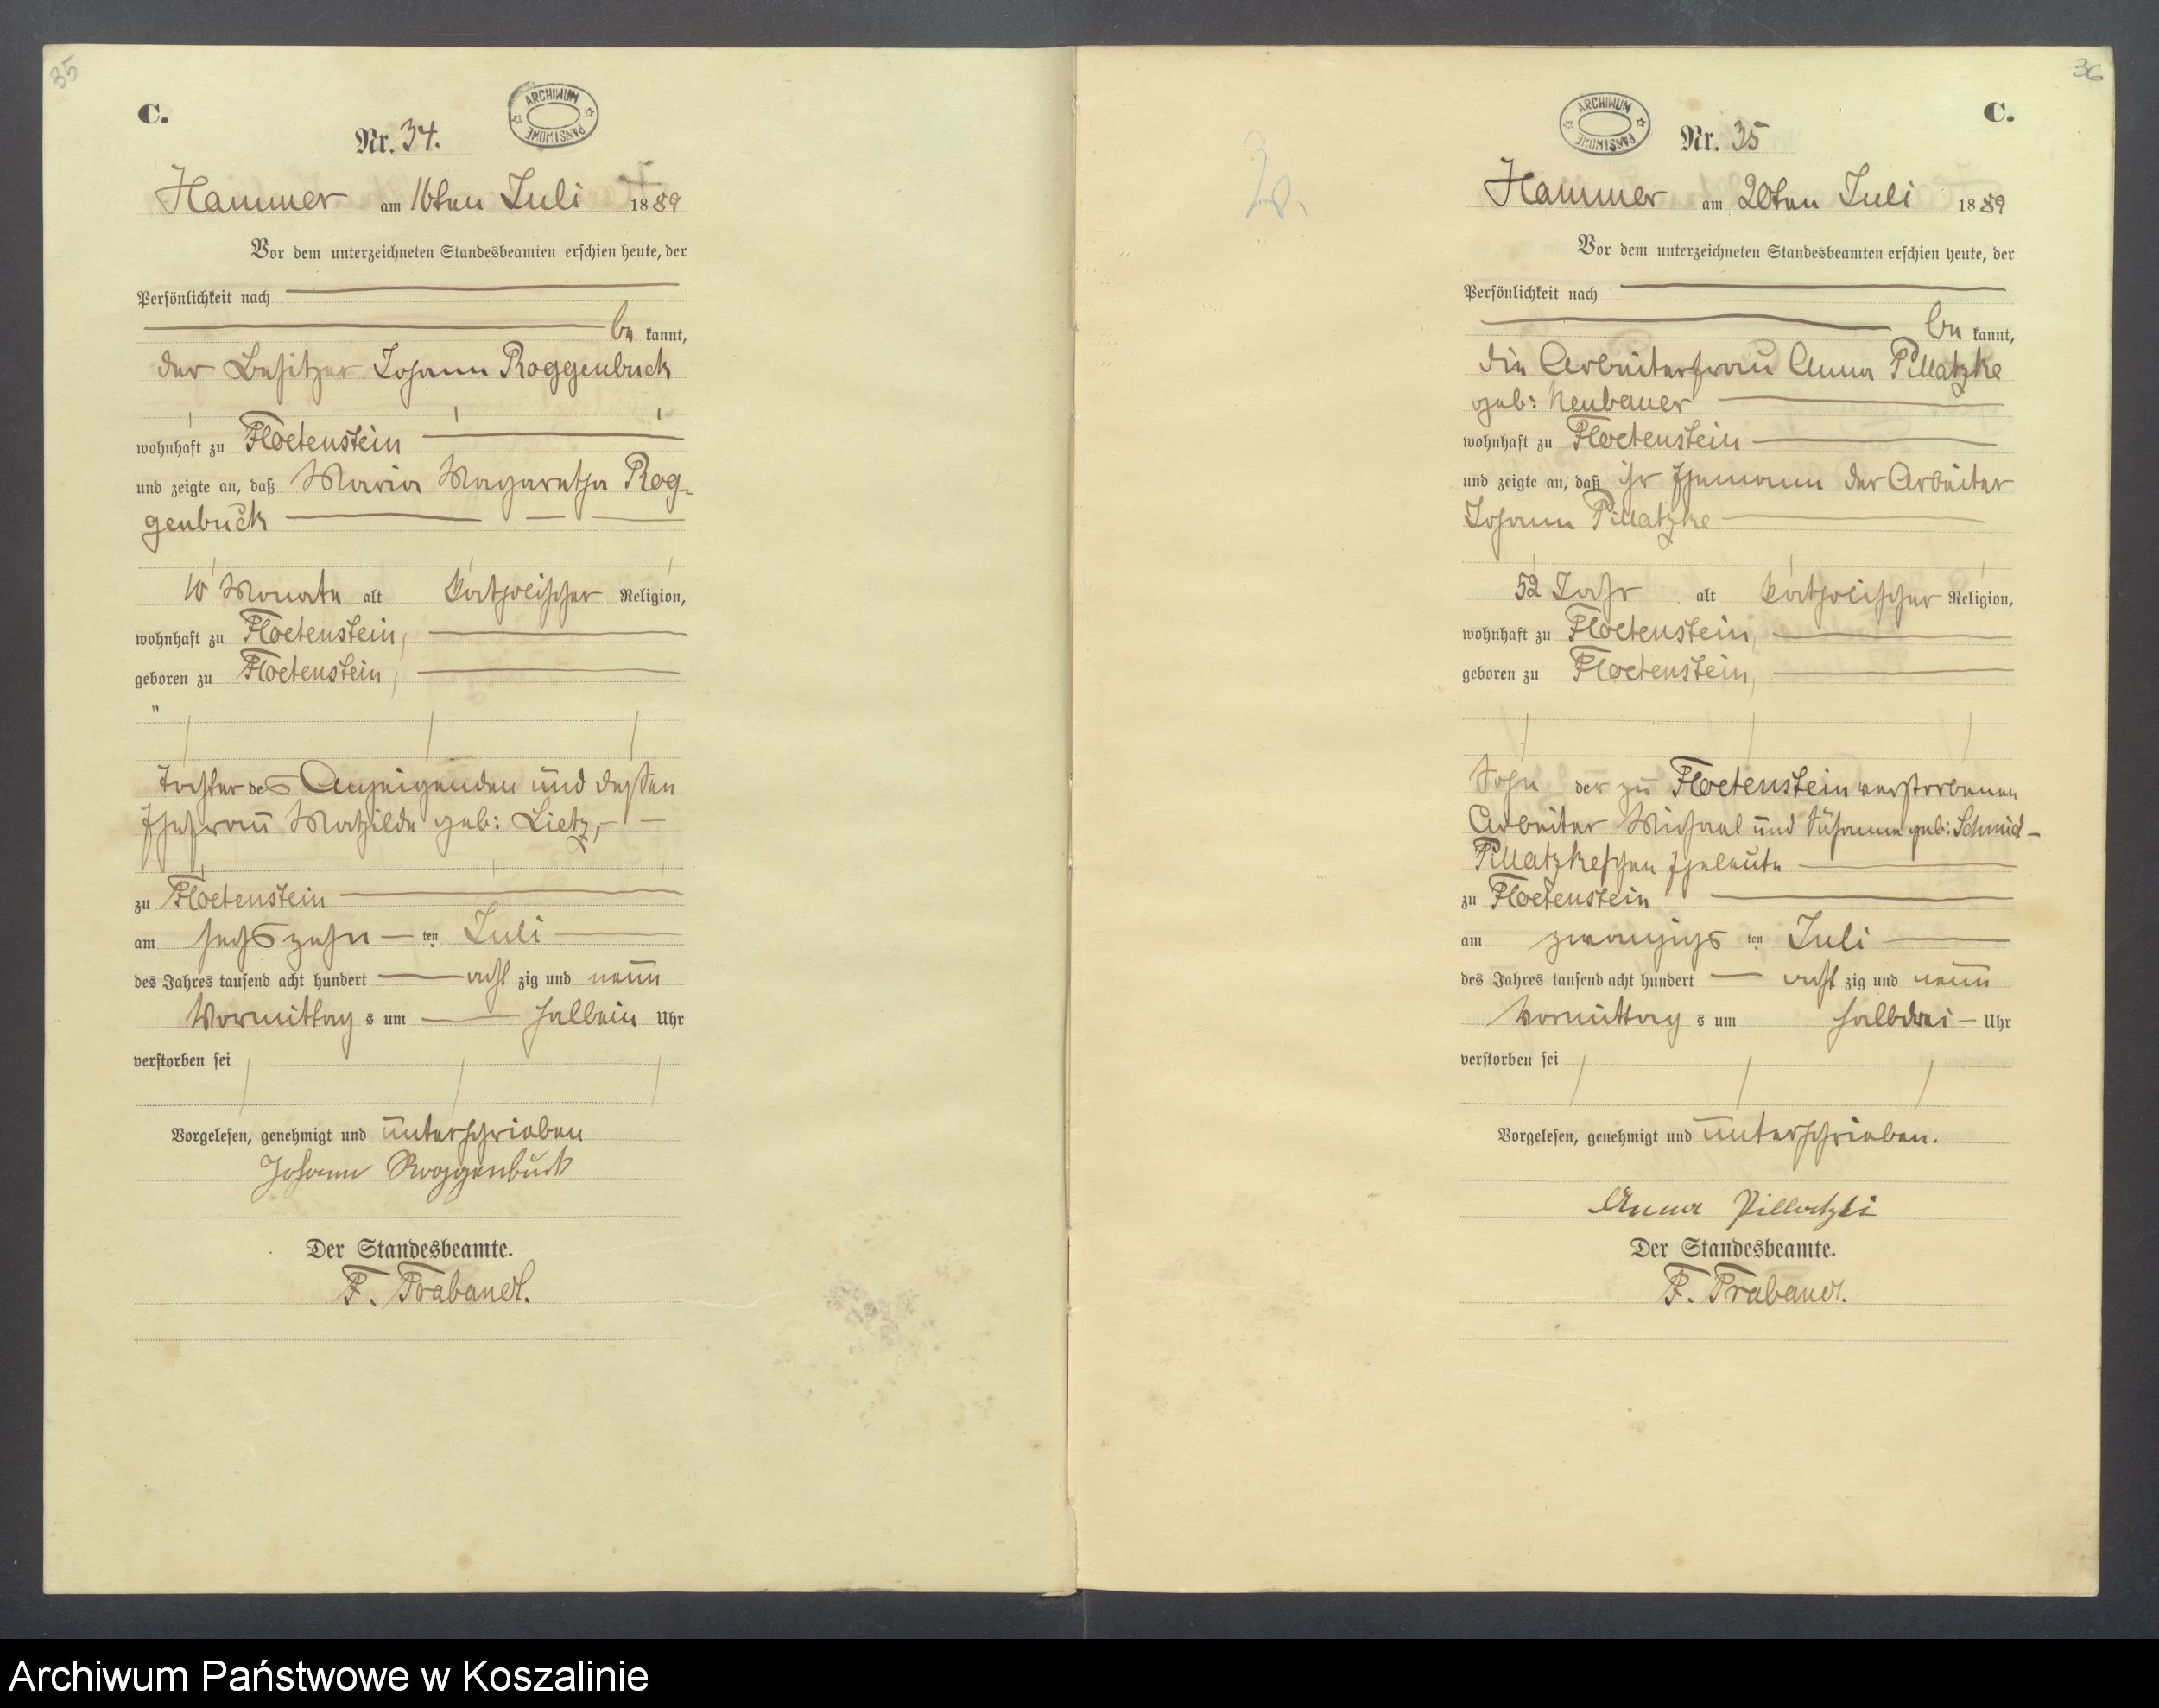 35
C.
ARCHIWUM PAŃSTWOWE
Nr. 34.
Hammer am 16ten Juli 1889
Vor dem unterzeichneten Standesbeamten erschien heute, der
Persönlichkeit nach
be kannt,
der Besitzer Johann Roggenbuck
wohnhaft zu Floetenstein
und zeigte an, daß Maria Magaretha Rog-
genbuck
10 Monate alt katholischer Religion,
wohnhaft zu Floetenstein,
geboren zu Floetenstein,
"
Tochter des Anzeigenden und dessen
Ehefrau Mathilde geb: Lietz,
zu Floetenstein
am sechszehn ten Juli
des Jahres tausend acht hundert acht zig und neun
Vormittag s um halbein Uhr
verstorben sei
Vorgelesen, genehmigt und unterschrieben
Johann Roggenbuck
Der Standesbeamte.
F. Trabandt.
36
C.
ARCHIWUM PAŃSTWOWE
Nr. 35
Hammer am 20ten Juli 1889
Vor dem unterzeichneten Standesbeamten erschien heute, der
Persönlichkeit nach
be kannt,
die Arbeiterfrau Anna Pillatzke
geb: Neubauer
wohnhaft zu Floetenstein
und zeigte an, daß ihr Ehemann der Arbeiter
Johann Pillatzke
52 Jahr alt katholischer Religion,
wohnhaft zu Floetenstein,
geboren zu Floetenstein,
Sohn der zu Floetenstein verstorbenen
Arbeiter Michael und Susanna geb: Schmid-
Pillatzkeschen Eheleute
zu Floetenstein
am zwanzigs ten Juli
des Jahres tausend acht hundert acht zig und neun
Vormittag s um halbdrei Uhr
verstorben sei
Vorgelesen, genehmigt und unterschrieben.
Anna Pillatzki
Der Standesbeamte.
F. Trabandt.
Archiwum Państwowe w Koszalinie